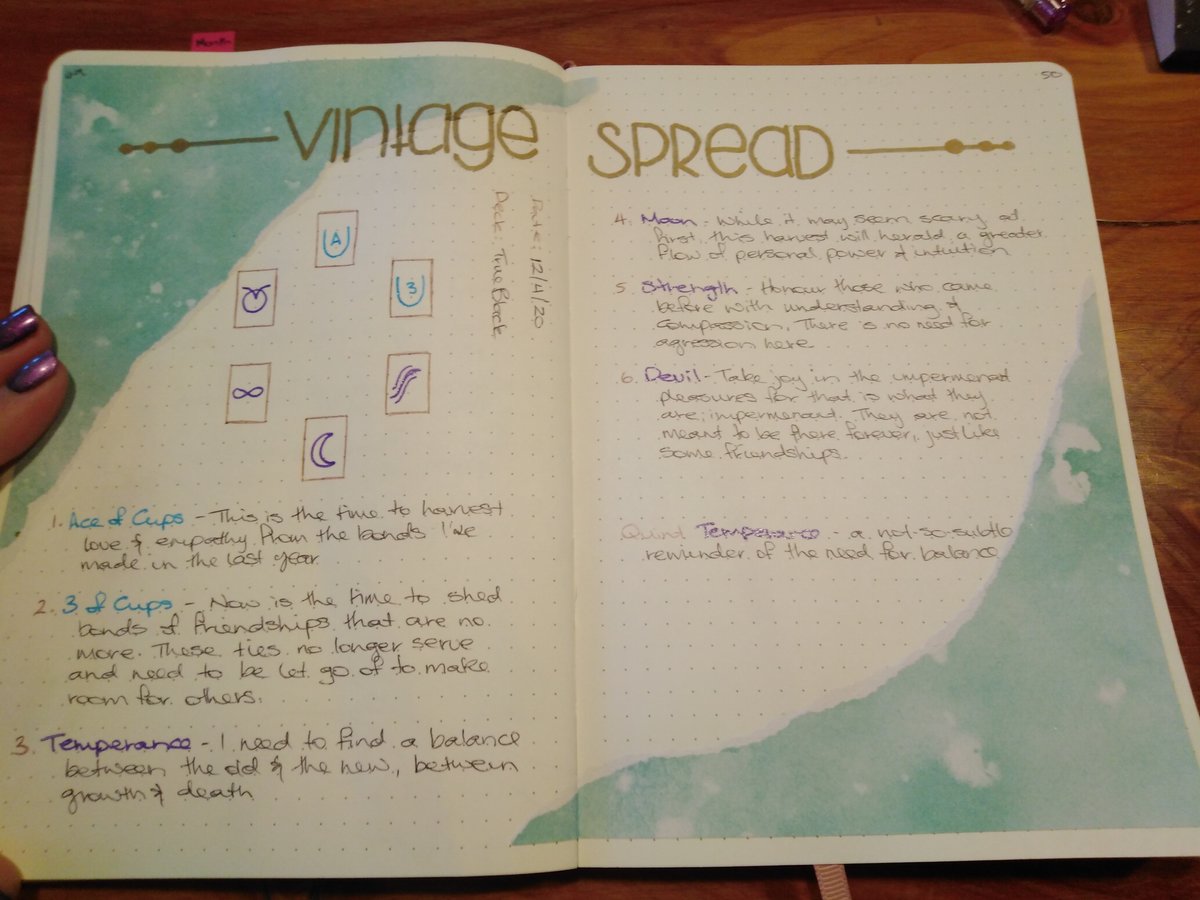 Vintage Spread
Date: 12/4/20
Deck: True Black
A
3
1. Ace of Cups - This is the time to harvest
love & empathy from the bonds I've
made in the last year.
2. 3 of Cups - Now is the time to shed
bonds of friendships that are no
more. These ties no longer serve
and need to be let go of to make
room for others.
3. Temperance - I need to find a balance
between the old & the new, between
growth & death
50
4. Moon - While it may seem scary at
first, this harvest will herald a greater
flow of personal power & intuition
5. Strength - Honour those who came
before with understanding &
compassion. There is no need for
agression here
6. Devil - Take joy in the impermenant
pleasures for that is what they
are; impermenant. They are not
meant to be there forever, just like
some friendships.
Quint Temperance - a not-so-subtle
reminder of the need for balance